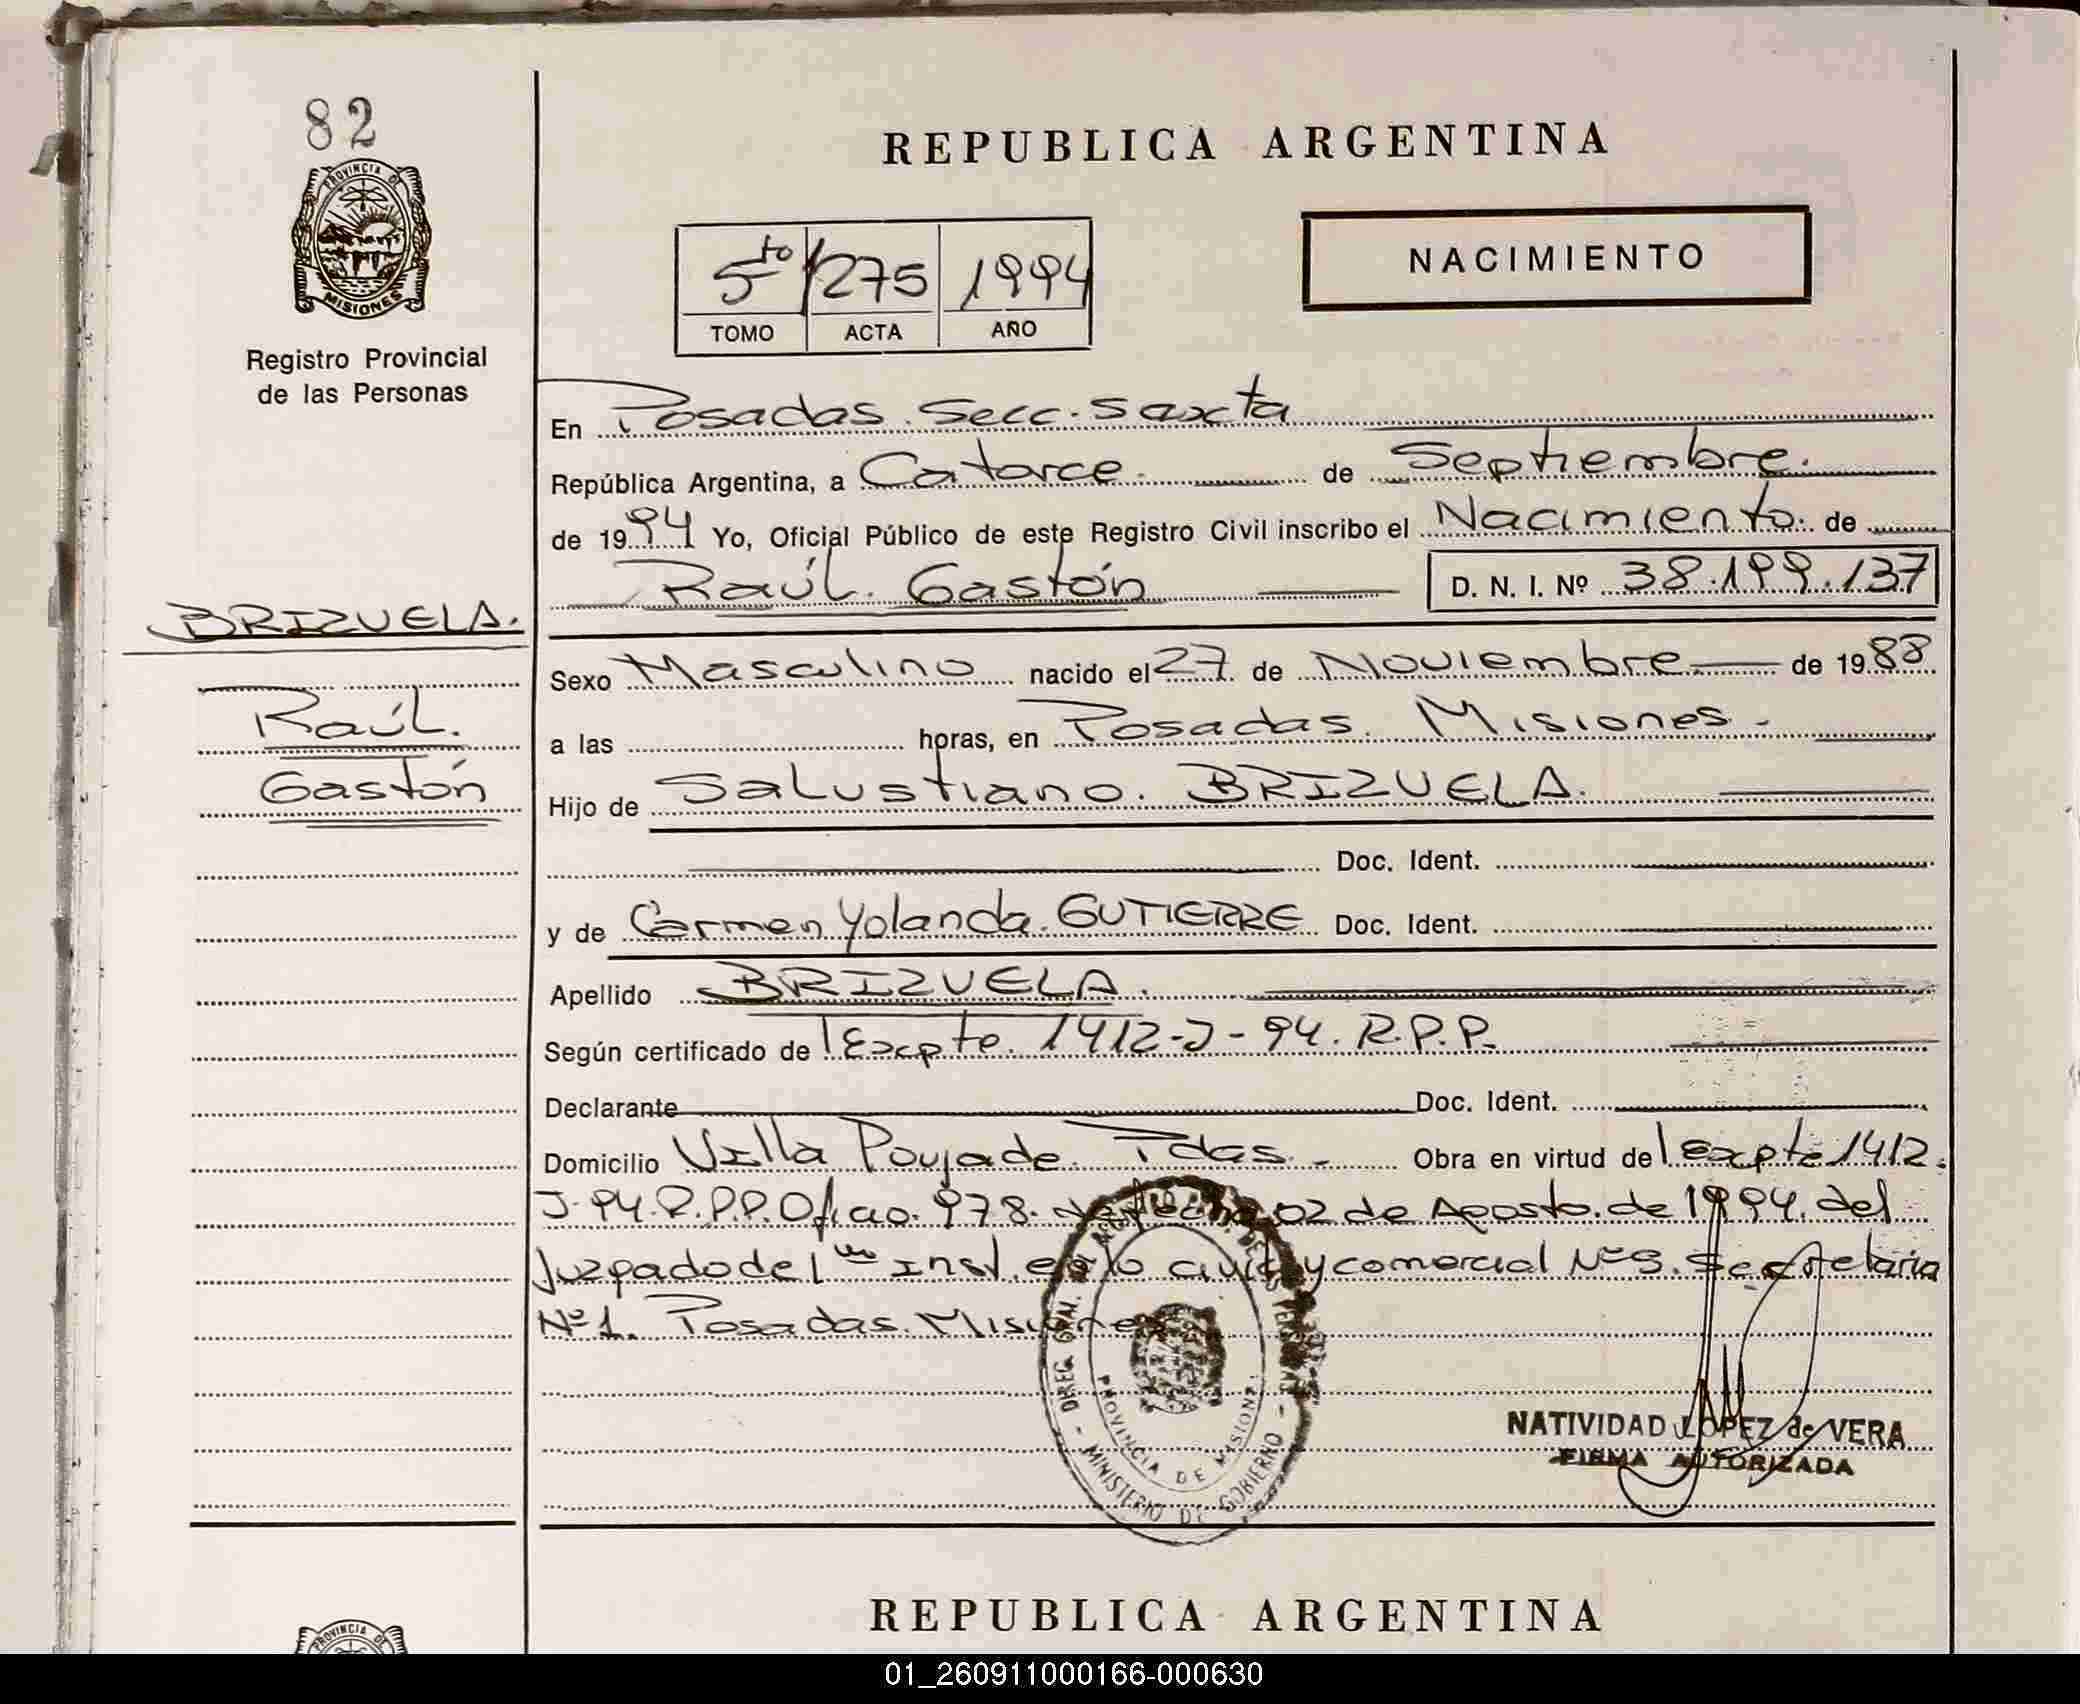 82
REPUBLICA ARGENTINA
PROVINCIA DE
MISIONES
5to 1275 1994
TOMO ACTA AÑO
NACIMIENTO
Registro Provincial
de las Personas
En Posadas. Secc. Saxcta
República Argentina, a Catorce. de Septiembre.
de 1994 Yo, Oficial Público de este Registro Civil inscribo el Nacimiento. de
Raúl. Gastón D. N. I. Nº 38.199.137
BRIZUELA.
Raúl.
Gastón
Sexo Masculino nacido el 27 de Noviembre de 1988
a las horas, en Posadas. Misiones.
Hijo de Salustiano. BRIZUELA.
Doc. Ident.
y de Carmen Yolanda. GUTIERRE Doc. Ident.
Apellido BRIZUELA.
Según certificado de l Expte. 1412-J-94. R.P.P.
Declarante Doc. Ident.
Domicilio Villa Poujade. Pdas. Obra en virtud del Expte 1412.
J.94.R.P.P. Oficio. 978. de fecha 02 de Agosto. de 1994. del
Juzgado de 1era Inst. en lo civil y comercial Nº 3. Secretaria
Nº 1. Posadas. Misiones
DIREC. GRAL. DEL REGISTRO DE LAS PERSONAS - MINISTERIO DE GOBIERNO -
PROVINCIA DE MISIONES
NATIVIDAD LOPEZ de VERA
FIRMA AUTORIZADA
REPUBLICA ARGENTINA
PROVINCIA DE
01_260911000166-000630